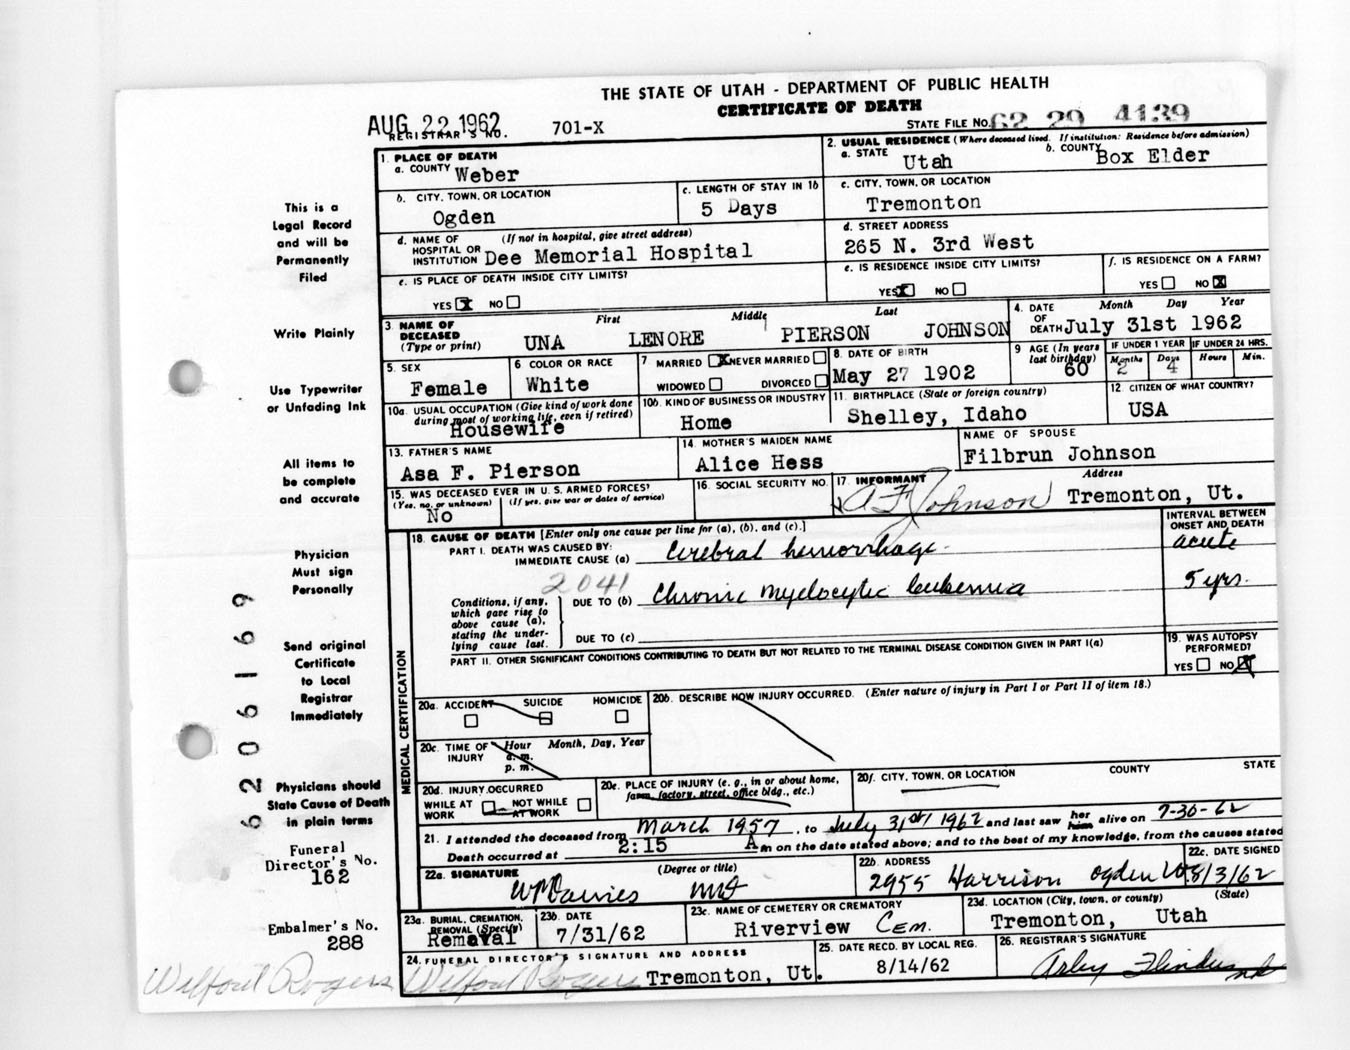 THE STATE OF UTAH - DEPARTMENT OF PUBLIC HEALTH
CERTIFICATE OF DEATH
AUG 22 1962
REGISTRAR'S NO. 701-X
STATE FILE NO. 62 29 4139
This is a
Legal Record
and will be
Permanently
Filed
Write Plainly
Use Typewriter
or Unfading Ink
All items to
be complete
and accurate
Physician
Must sign
Personally
Send original
Certificate
to Local
Registrar
Immediately
Physicians should
State Cause of Death
in plain terms
Funeral
Director's No.
162
Embalmer's No.
288
6206169
1. PLACE OF DEATH
a. COUNTY Weber
2. USUAL RESIDENCE (Where deceased lived. If institution: Residence before admission)
a. STATE Utah b. COUNTY Box Elder
b. CITY, TOWN, OR LOCATION
Ogden
c. LENGTH OF STAY IN 1b
5 Days
c. CITY, TOWN, OR LOCATION
Tremonton
d. NAME OF HOSPITAL OR INSTITUTION (If not in hospital, give street address)
Dee Memorial Hospital
d. STREET ADDRESS
265 N. 3rd West
e. IS PLACE OF DEATH INSIDE CITY LIMITS?
YES X NO
e. IS RESIDENCE INSIDE CITY LIMITS?
YES X NO
f. IS RESIDENCE ON A FARM?
YES NO X
3. NAME OF DECEASED (Type or print)
First Middle Last
UNA LENORE PIERSON JOHNSON
4. DATE OF DEATH Month Day Year
July 31st 1962
5. SEX
Female
6 COLOR OR RACE
White
7 MARRIED X NEVER MARRIED
WIDOWED DIVORCED
8. DATE OF BIRTH
May 27 1902
9 AGE (In years last birthday)
60
IF UNDER 1 YEAR
Months Days
2 4
IF UNDER 24 HRS.
Hours Min.
10a. USUAL OCCUPATION (Give kind of work done during most of working life, even if retired)
Housewife
10b. KIND OF BUSINESS OR INDUSTRY
Home
11. BIRTHPLACE (State or foreign country)
Shelley, Idaho
12. CITIZEN OF WHAT COUNTRY?
USA
13. FATHER'S NAME
Asa F. Pierson
14. MOTHER'S MAIDEN NAME
Alice Hess
NAME OF SPOUSE
Filbrun Johnson
15. WAS DECEASED EVER IN U. S. ARMED FORCES?
(Yes, no, or unknown) (If yes, give war or dates of service)
No
16. SOCIAL SECURITY NO.
17. INFORMANT Address
A F Johnson Tremonton, Ut.
MEDICAL CERTIFICATION
18. CAUSE OF DEATH [Enter only one cause per line for (a), (b), and (c).]
INTERVAL BETWEEN ONSET AND DEATH
PART I. DEATH WAS CAUSED BY:
IMMEDIATE CAUSE (a) Cerebral hemorrhage acute
2041
Conditions, if any, which gave rise to above cause (a), stating the underlying cause last.
DUE TO (b) Chronic myelocytic leukemia 5 yrs.
DUE TO (c)
PART II. OTHER SIGNIFICANT CONDITIONS CONTRIBUTING TO DEATH BUT NOT RELATED TO THE TERMINAL DISEASE CONDITION GIVEN IN PART I(a)
19. WAS AUTOPSY PERFORMED?
YES NO X
20a. ACCIDENT SUICIDE HOMICIDE
20b. DESCRIBE HOW INJURY OCCURRED. (Enter nature of injury in Part I or Part II of item 18.)
20c. TIME OF INJURY Hour Month, Day, Year
a. m.
p. m.
20d. INJURY OCCURRED
WHILE AT WORK NOT WHILE AT WORK
20e. PLACE OF INJURY (e. g., in or about home, farm, factory, street, office bldg., etc.)
20f. CITY, TOWN, OR LOCATION COUNTY STATE
21. I attended the deceased from March 1957, to July 31st 1962 and last saw her him alive on 7-30-62
Death occurred at 2:15 A m on the date stated above; and to the best of my knowledge, from the causes stated
22a. SIGNATURE (Degree or title)
W M Davies MD
22b. ADDRESS
2955 Harrison Ogden Ut
22c. DATE SIGNED
8/3/62
23a. BURIAL, CREMATION, REMOVAL (Specify)
Removal
23b. DATE
7/31/62
23c. NAME OF CEMETERY OR CREMATORY
Riverview Cem.
23d. LOCATION (City, town, or county) (State)
Tremonton, Utah
24. FUNERAL DIRECTOR'S SIGNATURE AND ADDRESS
Wilford Rogers Wilford Rogers Tremonton, Ut.
25. DATE RECD. BY LOCAL REG.
8/14/62
26. REGISTRAR'S SIGNATURE